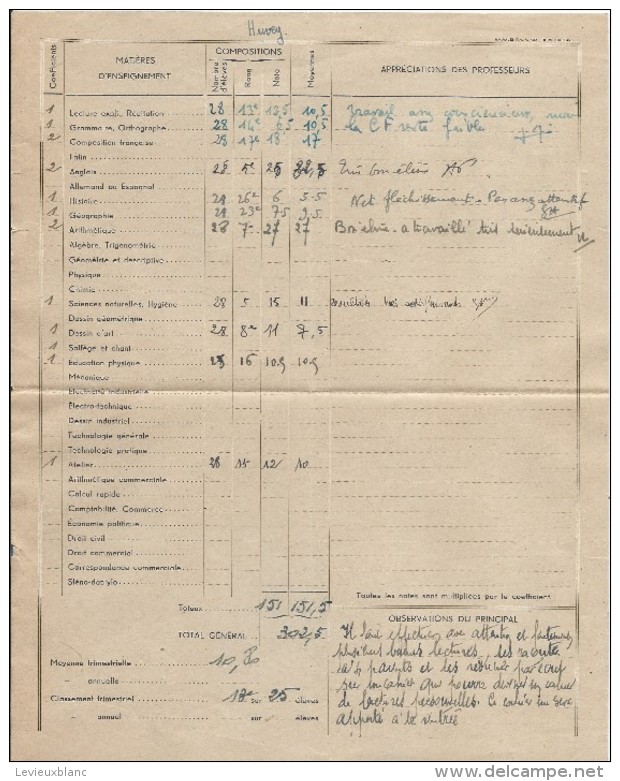 Huvey
Coefficients MATIÈRES D'ENSEIGNEMENT COMPOSITIONS Nombre d'élèves Rang Note Moyennes APPRÉCIATIONS DES PROFESSEURS
1 Lecture expli., Récitation 28 13e 13,5 10,5 Travail consciencieux, mais
1 Grammaire, Orthographe 28 14e 6.5 10,5 la CF reste faible
2 Composition française 28 17e 18 17
Latin
2 Anglais 28 5e 25 Très bon élève
Allemand ou Espagnol
1 Histoire 28 26e 6 5.5 Net fléchissement - Pas assez attentif
1 Géographie 28 23e 7.5 9,5
2 Arithmétique 28 7e 27 27 Bon élève - a travaillé très sérieusement
Algèbre, Trigonométrie
Géométrie et descriptive
Physique
Chimie
1 Sciences naturelles, Hygiène 28 5 15 11
Dessin géométrique
1 Dessin d'art 28 8e 11 7,5
1 Solfège et chant
1 Éducation physique 25 16 10.5 10.5
Mécanique
Électricité industrielle
Électro-technique
Dessin industriel
Technologie générale
Technologie pratique
1 Atelier 28 15 12 10
Arithmétique commerciale
Calcul rapide
Comptabilité, Commerce
Économie politique
Droit civil
Droit commercial
Correspondance commerciale
Sténo-dactylo
Toutes les notes sont multipliées par le coefficient
Totaux 151 151,5
TOTAL GÉNÉRAL 302,5
Moyenne trimestrielle 10,80
— annuelle
Classement trimestriel 13e sur 25 élèves
— annuel sur élèves
OBSERVATIONS DU PRINCIPAL
Il faut effectuer avec attention et
plusieurs bonnes lectures, les raconter
à ses parents et les résumer
sur un cahier qui pourra devenir un cahier
de lectures personnelles. Ce cahier me sera
apporté à la rentrée